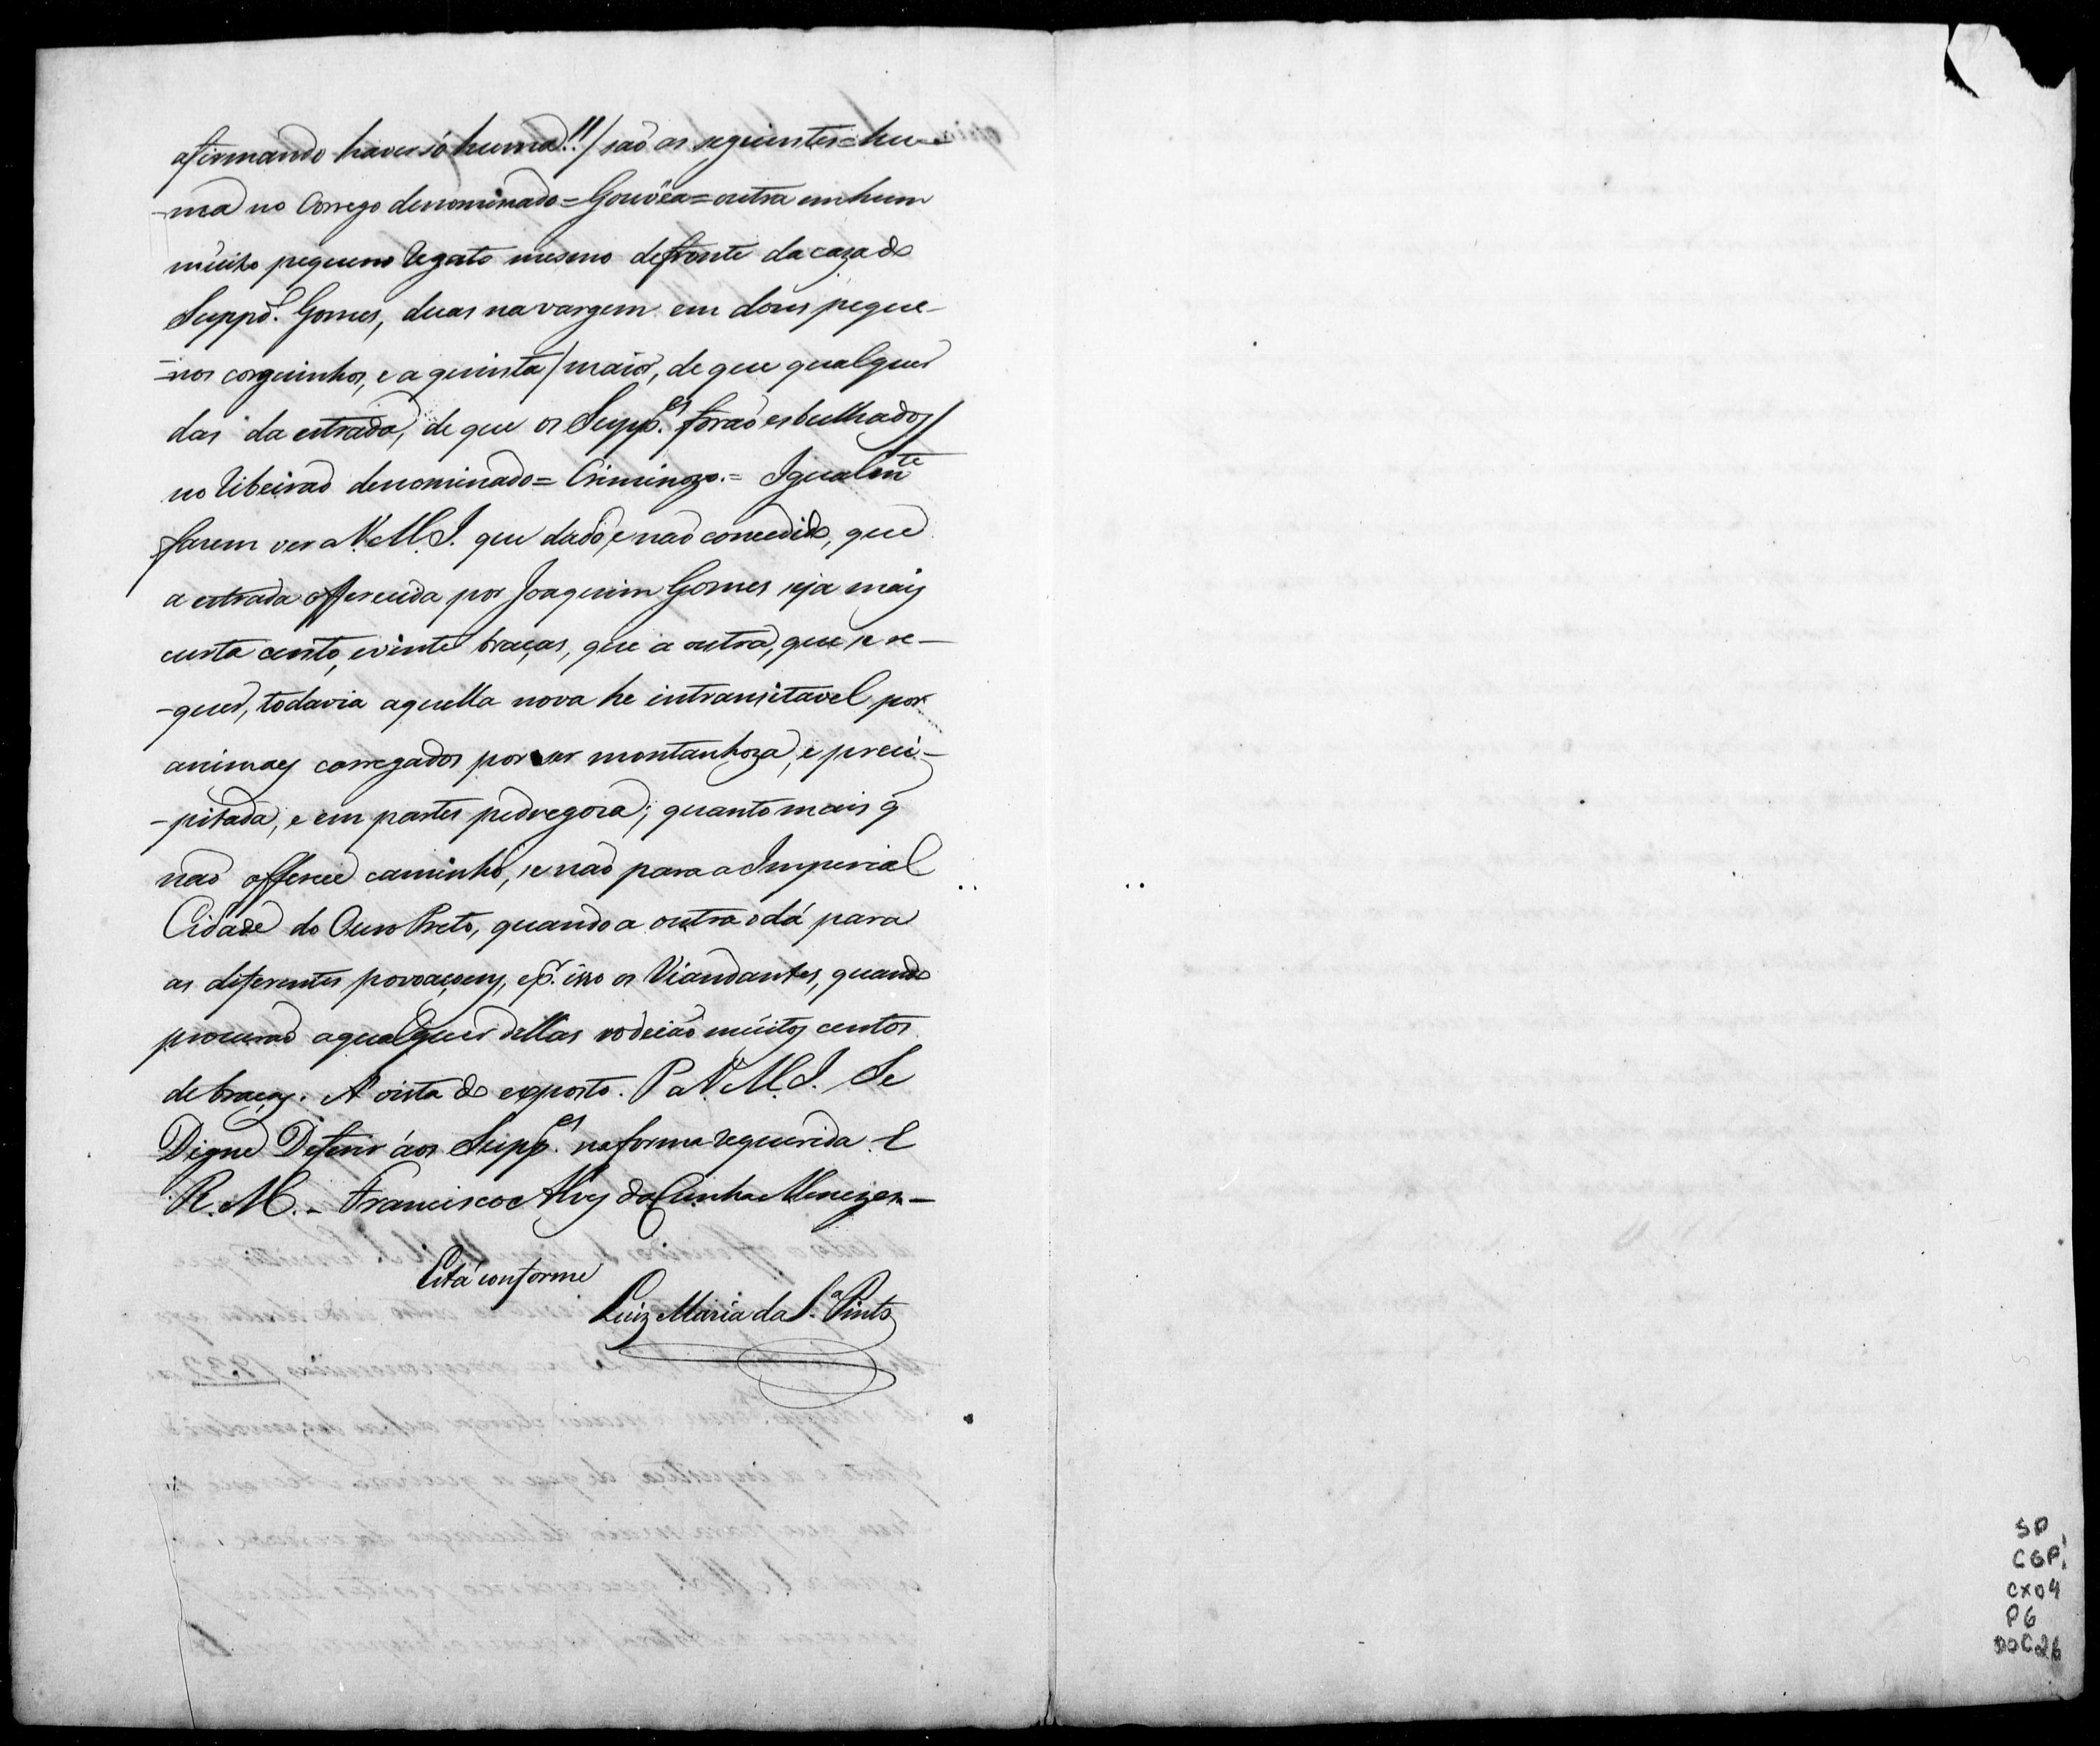 afirmando haver só huma!!/ são as seguintes = hu-
-ma no Corrego denominado = Gouvêa = outra em hum
muito pequeno regato mesmo defronte da caza do
Suppd.º Gomes, duas na vargem em dous peque-
-nos corguinhos, e a quinta / maior, de que qualquer
das da estrada, de que os Supp.es forão esbulhados/
no ribeirão denominado = Criminozo. = Igualm.te
fazem ver a V. M. I. que dado, e não concedido, que
a estrada offerecida por Joaquim Gomes seja mais
curta cento, e vinte braças, que a outra, que se re-
-quer, todavia aquella nova he intransitavel por
animaes carregados por ser montanhoza, e preci-
-pitada, e em partes pedregosa; quanto mais q̃
não offerece caminho, se não para a Imperial
Cidade do Ouro Preto, quando a outra o dá para
as diferentes povoaçoens, e p.r isso os Viandantes, quando
procurão a qualquer dellas rodeião muitos centos
de braças. A' vista do exposto. P. a V. M. I. Se
Digne Deferir áos Supp.es na forma requerida. E
R. M. - Francisco Alves da Cunha Menezes. -
Está conforme
Luiz Maria da S.ª Pinto
SP
CGP1
CX04
P6
DOC26